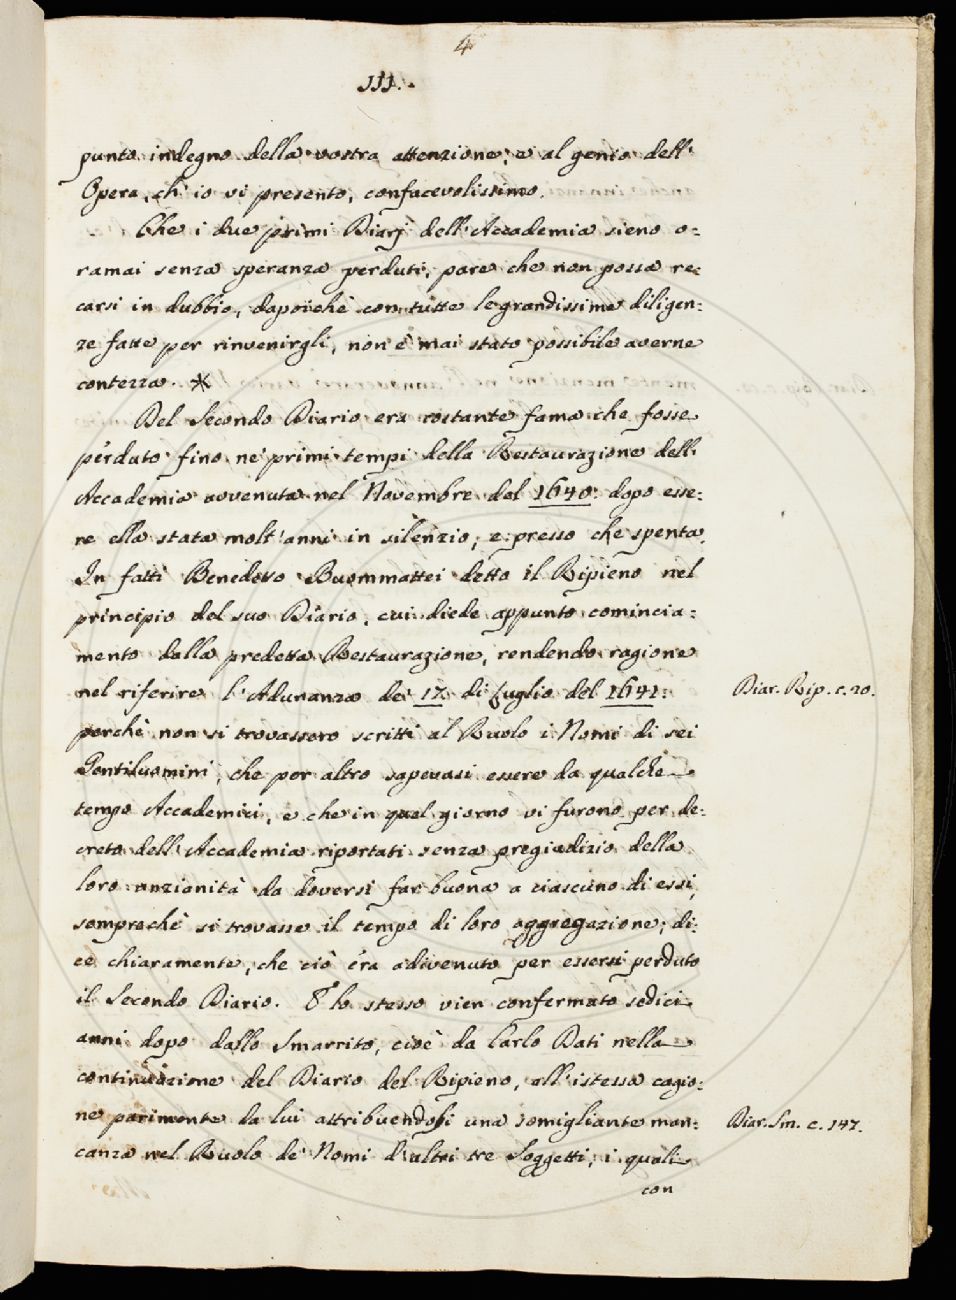 4
III.
punto indegno della vostra attenzione, e al genio dell'
Opera, ch' io vi presento, confacevolissimo.
Che i due primi Diarj dell'Accademia sieno o=
ramai senza speranza perduti, pare che non possa re=
carsi in dubbio, dapoichè con tutte le grandissime diligen=
ze fatte per rinvenirgli, non è mai stato possibile averne
contezza. *
Del Secondo Diario era costante fama che fosse
perduto fino ne' primi tempi della Restaurazione dell'
Accademia avvenuta nel Novembre del 1640: dopo esse=
re ella stata molt'anni in silenzio, e presso che spenta.
In fatti Benedetto Buommattei detto il Ripieno nel
principio del suo Diario, cui diede appunto comincia=
mento dalla predetta Restaurazione, rendendo ragione
nel riferire l'Adunanza de' 17. di Luglio del 1641:
perchè non si trovassero scritti al Ruolo i Nomi di sei
Gentiluomini, che per altro sapevasi essere da qualche
tempo Accademici, e che in quel giorno vi furono per de=
creto dell'Accademia riportati senza pregiudizio della
loro anzianità da doversi far buona a ciascuno di essi,
sempre chè si trovasse il tempo di loro aggregazione; di=
ce chiaramente, che ciò era adivenuto per essersi perduto
il Secondo Diario. E lo stesso vien confermato sedici
anni dopo dallo Smarrito, cioè da Carlo Dati nella
continuazione del Diario del Ripieno, all'istessa cagio=
ne parimente da lui attribuendosi una somigliante man=
canza nel Ruolo de' Nomi d'altri tre Soggetti, i quali
con
Diar. Rip. c. 20.
Diar. Sm. c. 147.